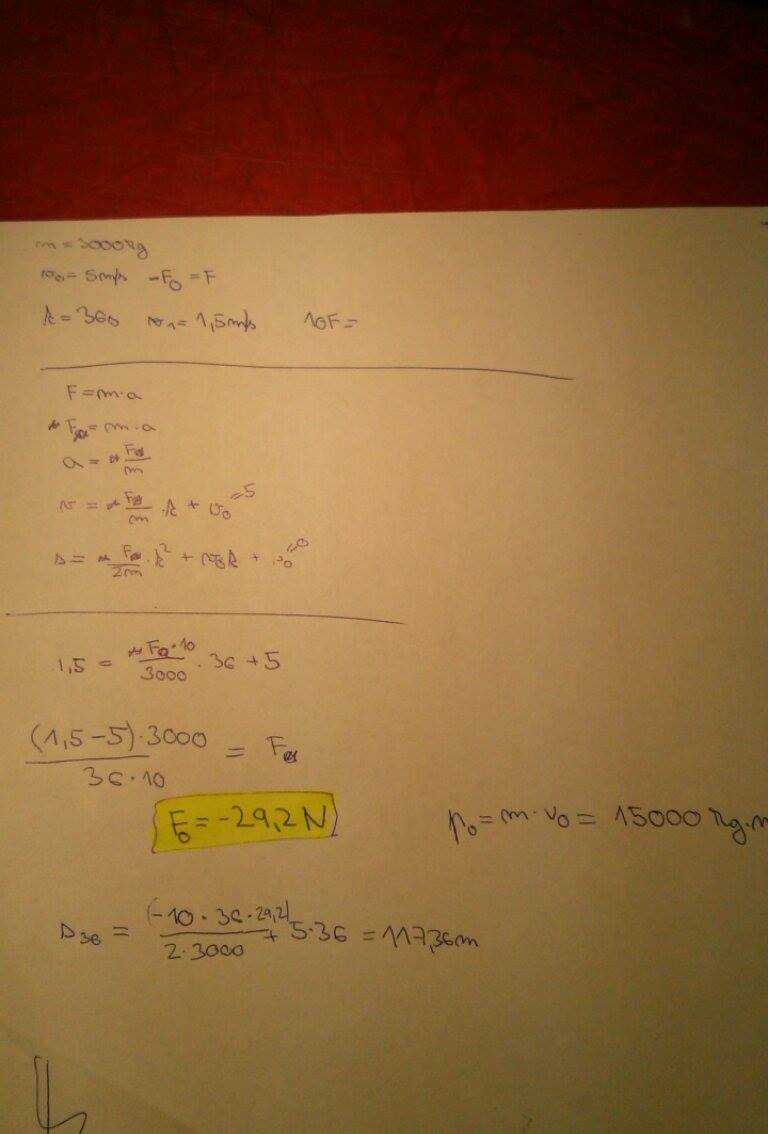 m = 3000kg
v₀ = 5m/s -F₀ = F
t = 36s v₁ = 1,5m/s 10F =
F = m·a
F₀ = m·a
a = F₀/m
v = F₀/m · t + v₀ =5
s = F₀/2m · t² + v₀t + s₀ =0
1,5 = F₀·10/3000 · 36 + 5
(1,5-5)·3000/36·10 = F₀
F₀ = -29,2 N
p₀ = m·v₀ = 15000 kg·m
s₃₆ = (-10·36·29,2)/2·3000 + 5·36 = 117,36m